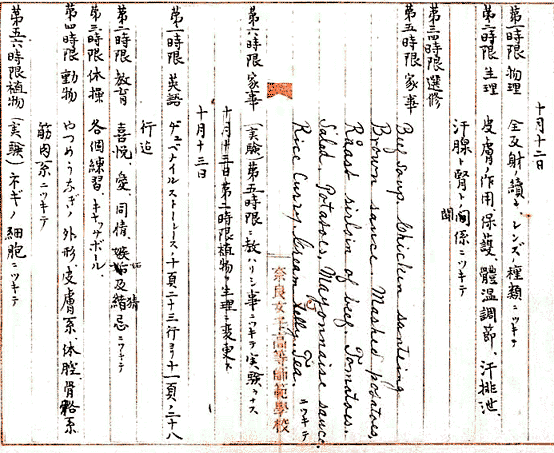 十月十二日
第一時限 物理 全反射ノ續キ、レンズノ種類ニツキテ
第二時限 生理 皮膚ノ作用、保護、體溫調節、汗排泄、
汗腺ト腎トノ関係ニツキテ
第三四時限 選修
第五時限 家事 Beef soup, Chicken
Brown sauce Mashed potatoes,
Roast sirloin of beef, Tomatoes.
Salad, Potatoes, Mayonnaise sauce,
Rice Curry, Cream Jelly, Tea. ニツキテ
奈良女子高等師範學校
第六時限 家事 (実験)第五時限ニ教ハリシ事ニツキテ実験ヲナス
十月廿五日第二時限植物ヲ生理ニ変更ス
十月十三日
第一時限 英語 十頁二十三行ヨリ十一頁ノ二十八
行迄
第二時限 教育 喜悦、愛、同情、嫉妬及猜忌ニツキテ
第三時限 体操 各個練習、キャプテンボール
第四時限 動物 やつめうなぎノ外形、皮膚系、体腔、骨骼系
筋肉系ニツキテ
第五六時限 植物 (実験)ネギノ細胞ニツキテ